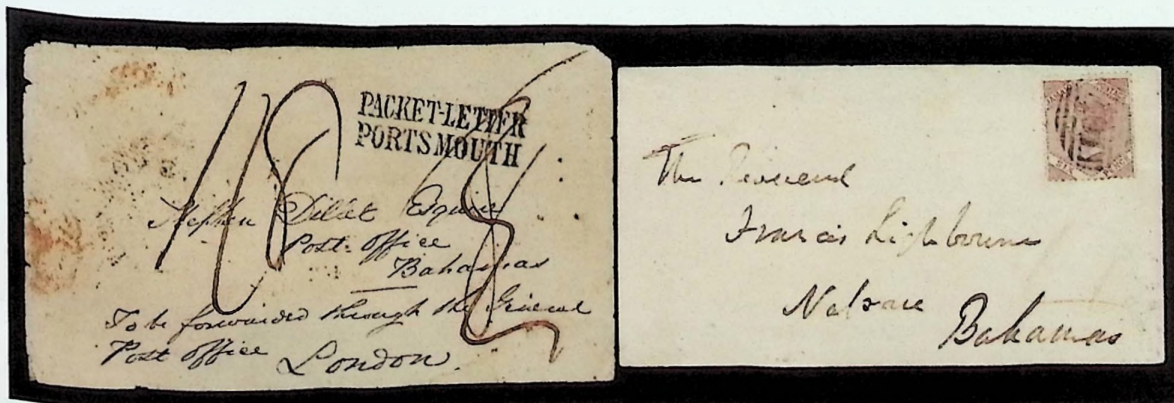 PACKET-LETTER
PORTSMOUTH
Stephen Dillet Esquire
Post Office
Bahamas
To be forwarded through the General
Post Office London.
The Reverend
Francis Lightbourn
Nassau
Bahamas